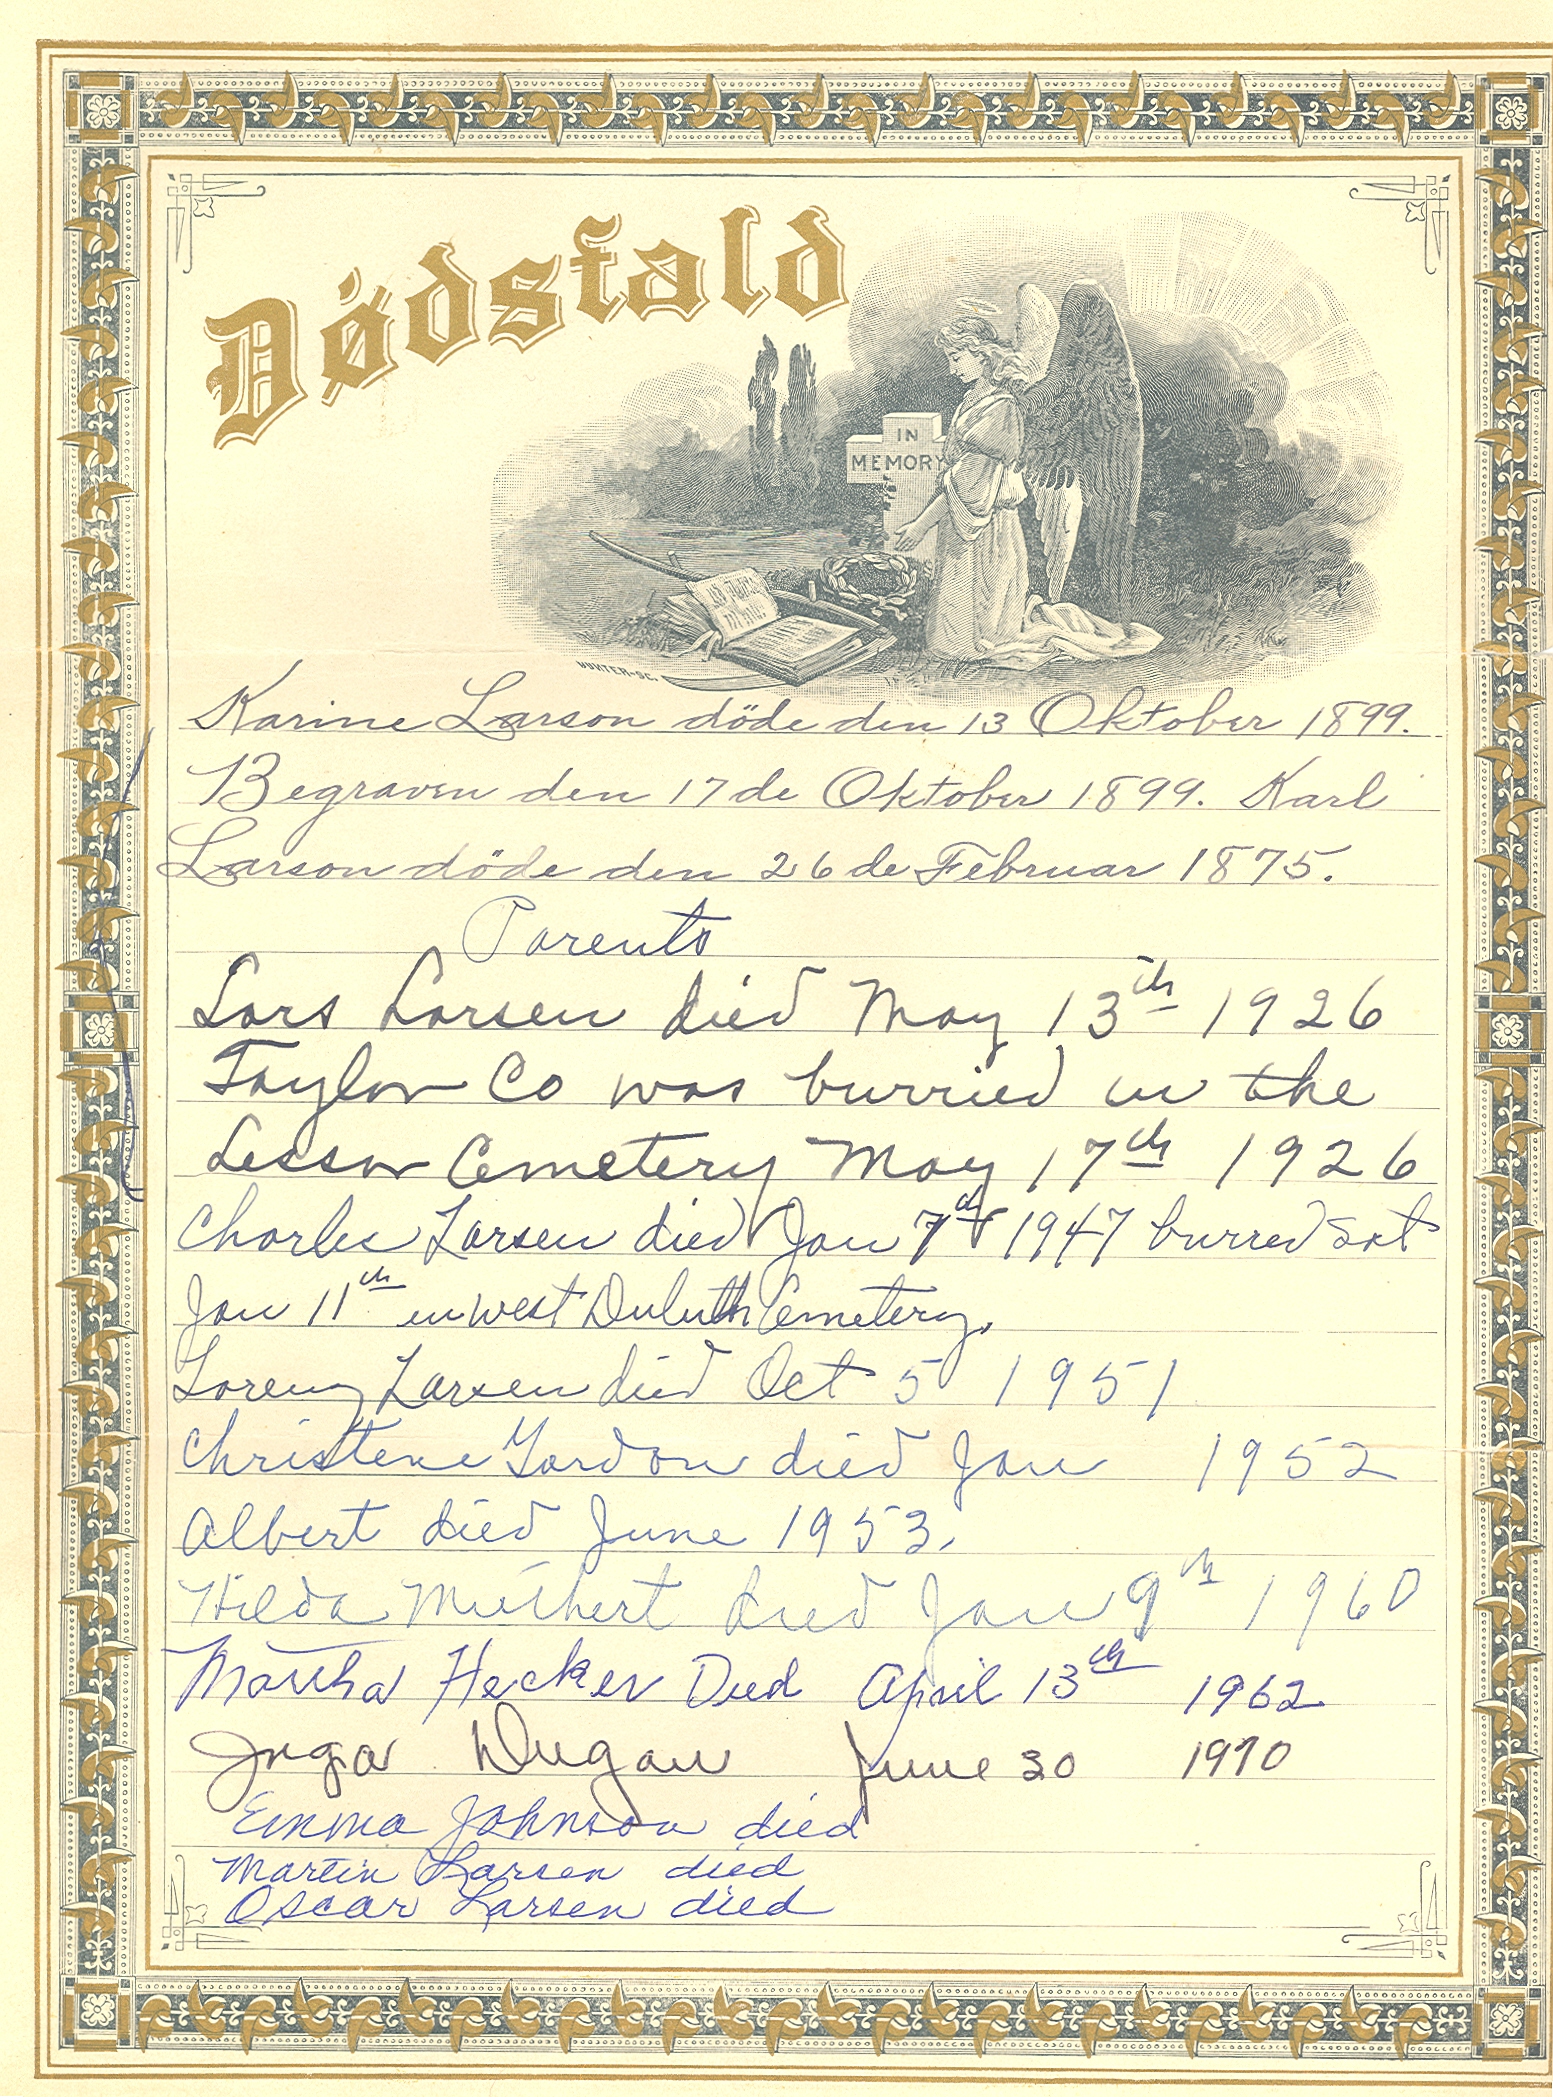 Dødsfald
IN
MEMORY
HUNTER-SC.
Karine Larson döde den 13 Oktober 1899.
Begraven den 17 de Oktober 1899. Karl
Larson döde den 26 de Februar 1875.
Parents
Lars Larsen died May 13th 1926
Taylor Co was burried in the
Lessor Cemetery May 17th 1926
Charles Larsen died Jan 7th 1947 burred Sat
Jan 11th in West Duluth Cemetery.
Lorenz Larsen died Oct 5 1951
Christene Gordon died Jan 1952
Albert died June 1953.
Hilda died Jan 9th 1960
Martha Hecker Died April 13th 1962
Inga Dugan June 30 1970
Emma Johnson died
Martin Larsen died
Oscar Larsen died